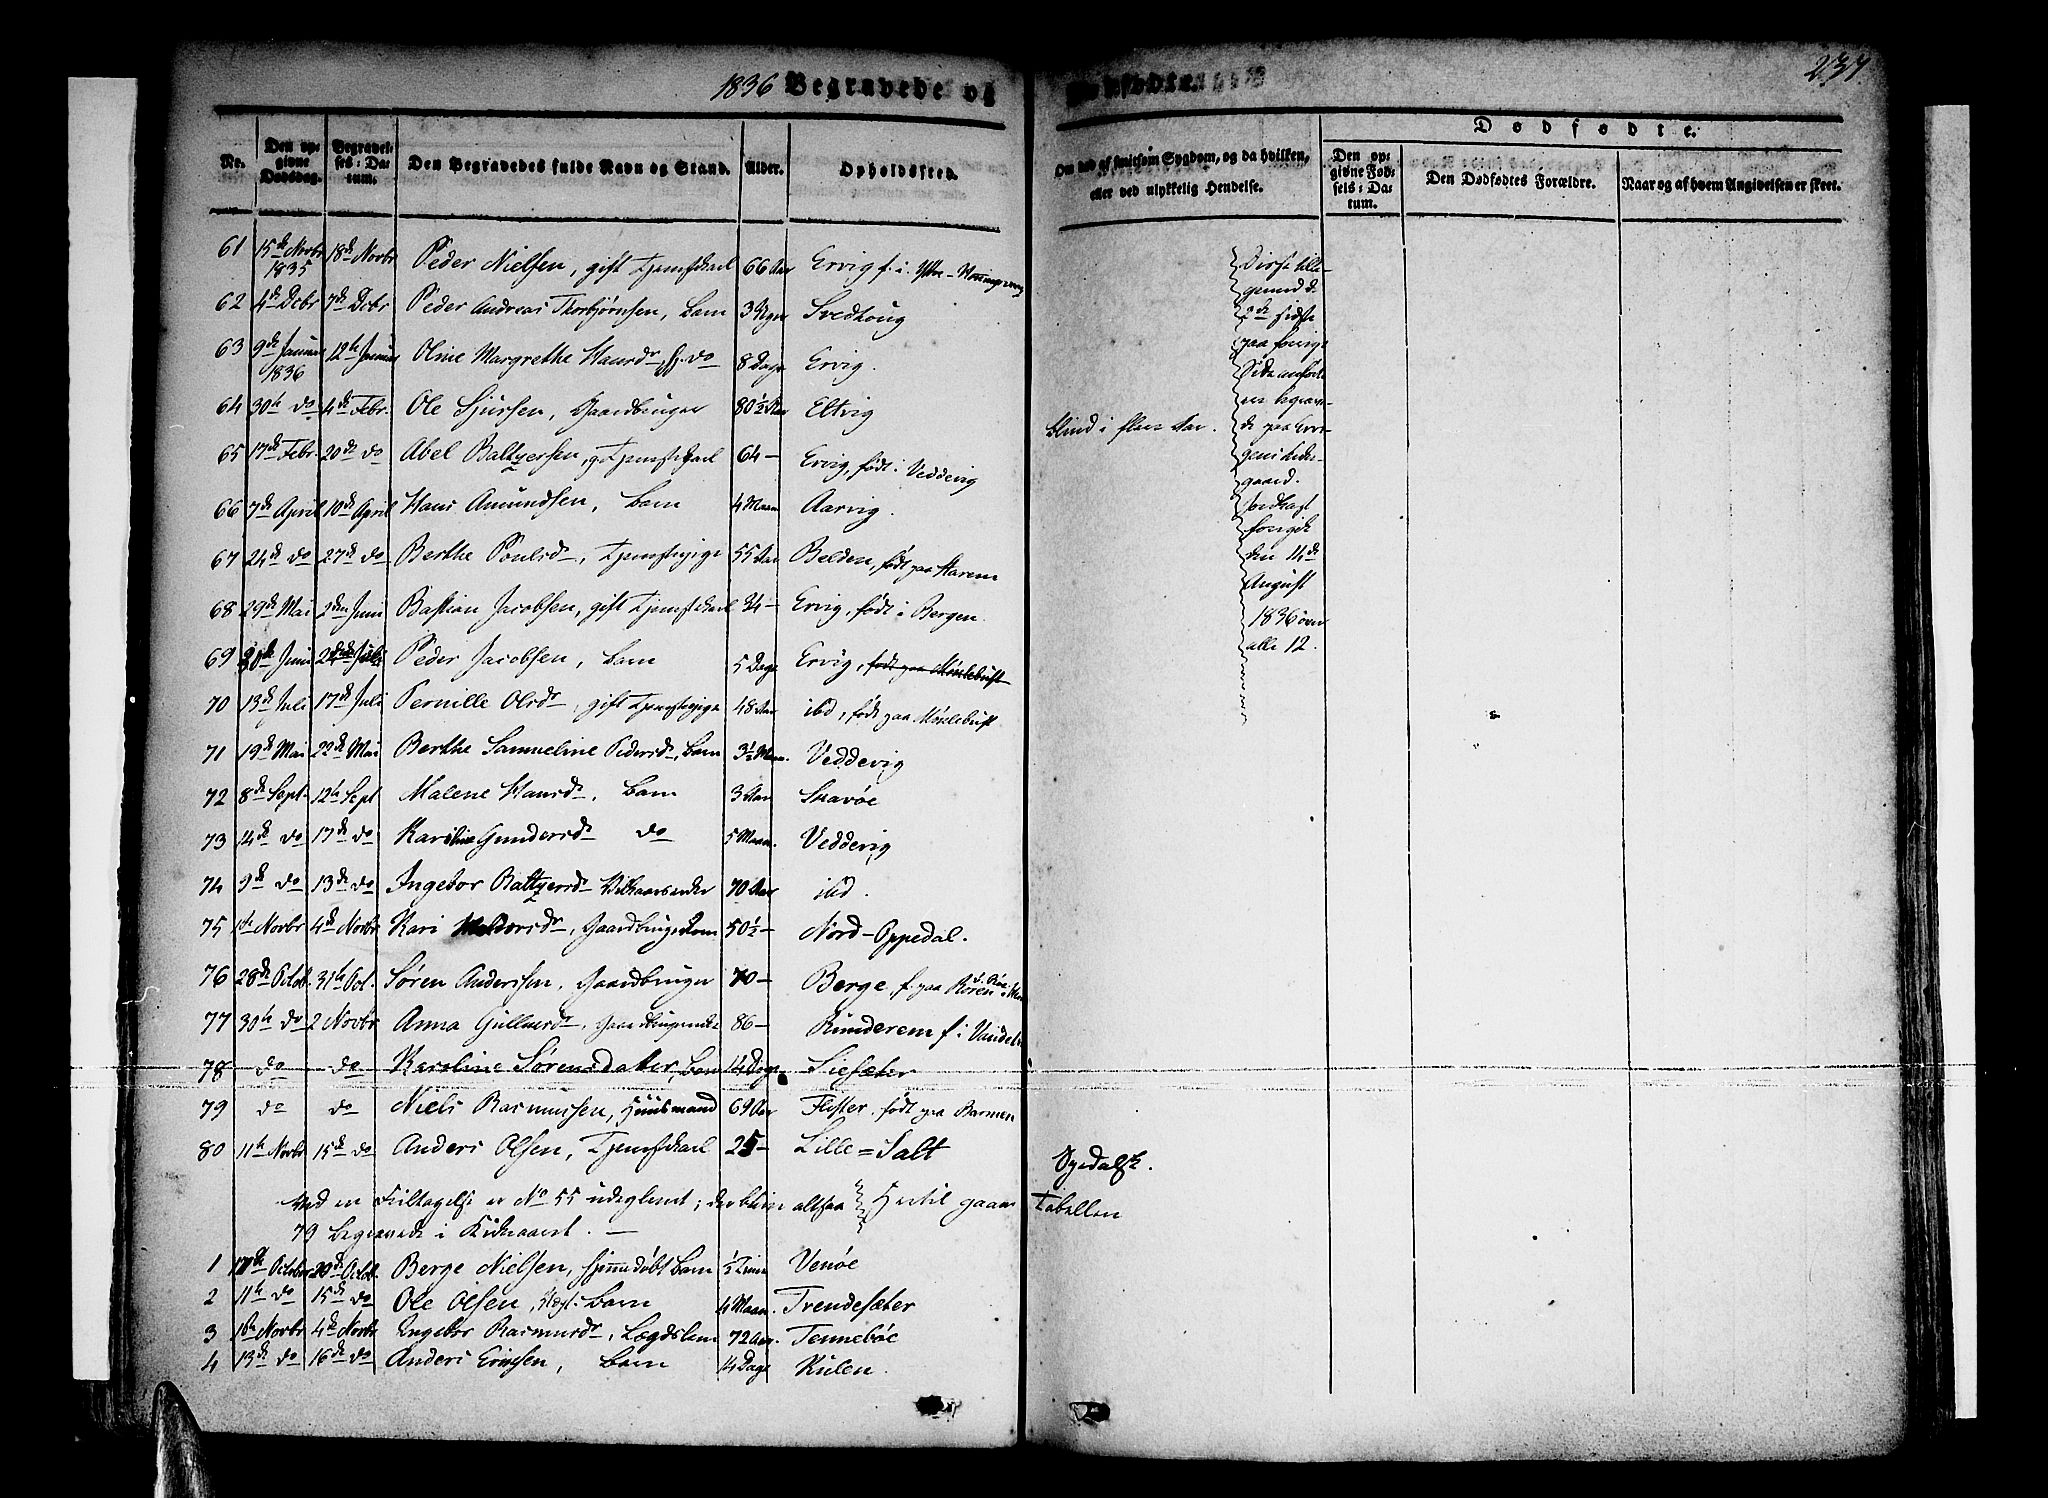 1836 Begravede og Dødfødte. 237
Nr. Den opgivne Dødsdag. Begravelses-Datum. Den Begravedes fulde Navn og Stand. Alder. Opholdssted. Om død af smitsom Sygdom, og da hvilken, eller ved ulykkelig Hendelse.
Dødfødte.
Den opgivne Fødsels-Datum. Den Dødfødtes Forældre. Naar og af hvem Angivelsen er skeet.
61 15de Novbr 1835 18de Novbr Peder Nielsen, gift Tjenstkarl 66 Aar Ervig f. i Ytre-
62 4de Dcbr 7de Dcbr Peder Andreas Thorbjørnsen, Barn 3 Uger Svedhoug
63 9de Januar 1836 12te Januar Oline Margrethe Hansdr, do 8 Dage Ervig.
64 30te do 4de Febr. Ole Sjursen, Gaardbruger 80½ Aar Eltvig
65 17de Febr. 20de do Abel Baltzersen, g. Tjenstkarl 64 — Ervig, født i Veddevig blind i flere Aar.
66 7de April 10de April Hans Amundsen, Barn 4 Maan Aarvig.
67 24de do 27de do Berthe Poulsdr, Tjenstepige 55 Aar Belden, født paa Harem
68 29de Mai 2den Juni Bastian Jacobsen, gift Tjenstkarl 34 — Ervig, født i Bergen.
69 Juni Juli Peder Jacobsen, Barn 5 Dage Ervig, født paa Mörlebust
70 13de Juli 17de Juli Pernille Olsdr, gift Tjenstepige 48 Aar ibid, født paa Mörlebust
71 19de Mai 22de Mai Berthe Samueline Pedersdr, Barn 3½ Maan. Veddevig
72 8de Sept. 12te Sept Malene Hansdr, Barn 3 Aar Skavøe
73 14de do 17de do Karoline Gundersdr do 5 Maan. Veddevig
74 9de do 13de do Ingebor Baltzersdr 70 Aar ibid.
75 1ste Novbr 4de Novbr Kari, Gaardbrugerkone 50½ — Nord-Oppedal.
76 28de Octob. 31te Oct. Søren Andersen, Gaardbruger 70 — Berge, f. paa
77 30te do 2 Novbr Anna Gullersdr, Gaardbrugerenke 86 — Runderem f. i
78 do do Karoline Sørensdatter, Barn 14 Dage Liesæter
79 do do Niels Rasmussen, Huusmand 69 Aar Flister, født paa Barmen
80 11te Novbr 15de do Anders Olsen, Tjenstkarl 25 — Lille=Salt Spedalsk.
Disse tillige med de 2de sidste paa forrige Side anførte ere begravede paa Ervigens Kirkegaard. Jordkast foregik den 14de August 1836 over alle 12.
Ved en Feiltagelse er No 55 udeglemt; der bliver altsaa
79 begravede i Kirkeaaret. — Hertil gaaer Tabellen
1 17de October 20de Octob. Berge Nielsen, hjemmedøbt Barn ½ Time Venöe
2 11te do 15de do Ole Olsen, Barn 4 Maan. Trendesæter
3 1ste Novbr 4de Novbr Ingebor Rasmusdr, Lægdslem 72 Aar. Tennebøe
4 13de do 16de do Anders, Barn 14 Dage Kulen.